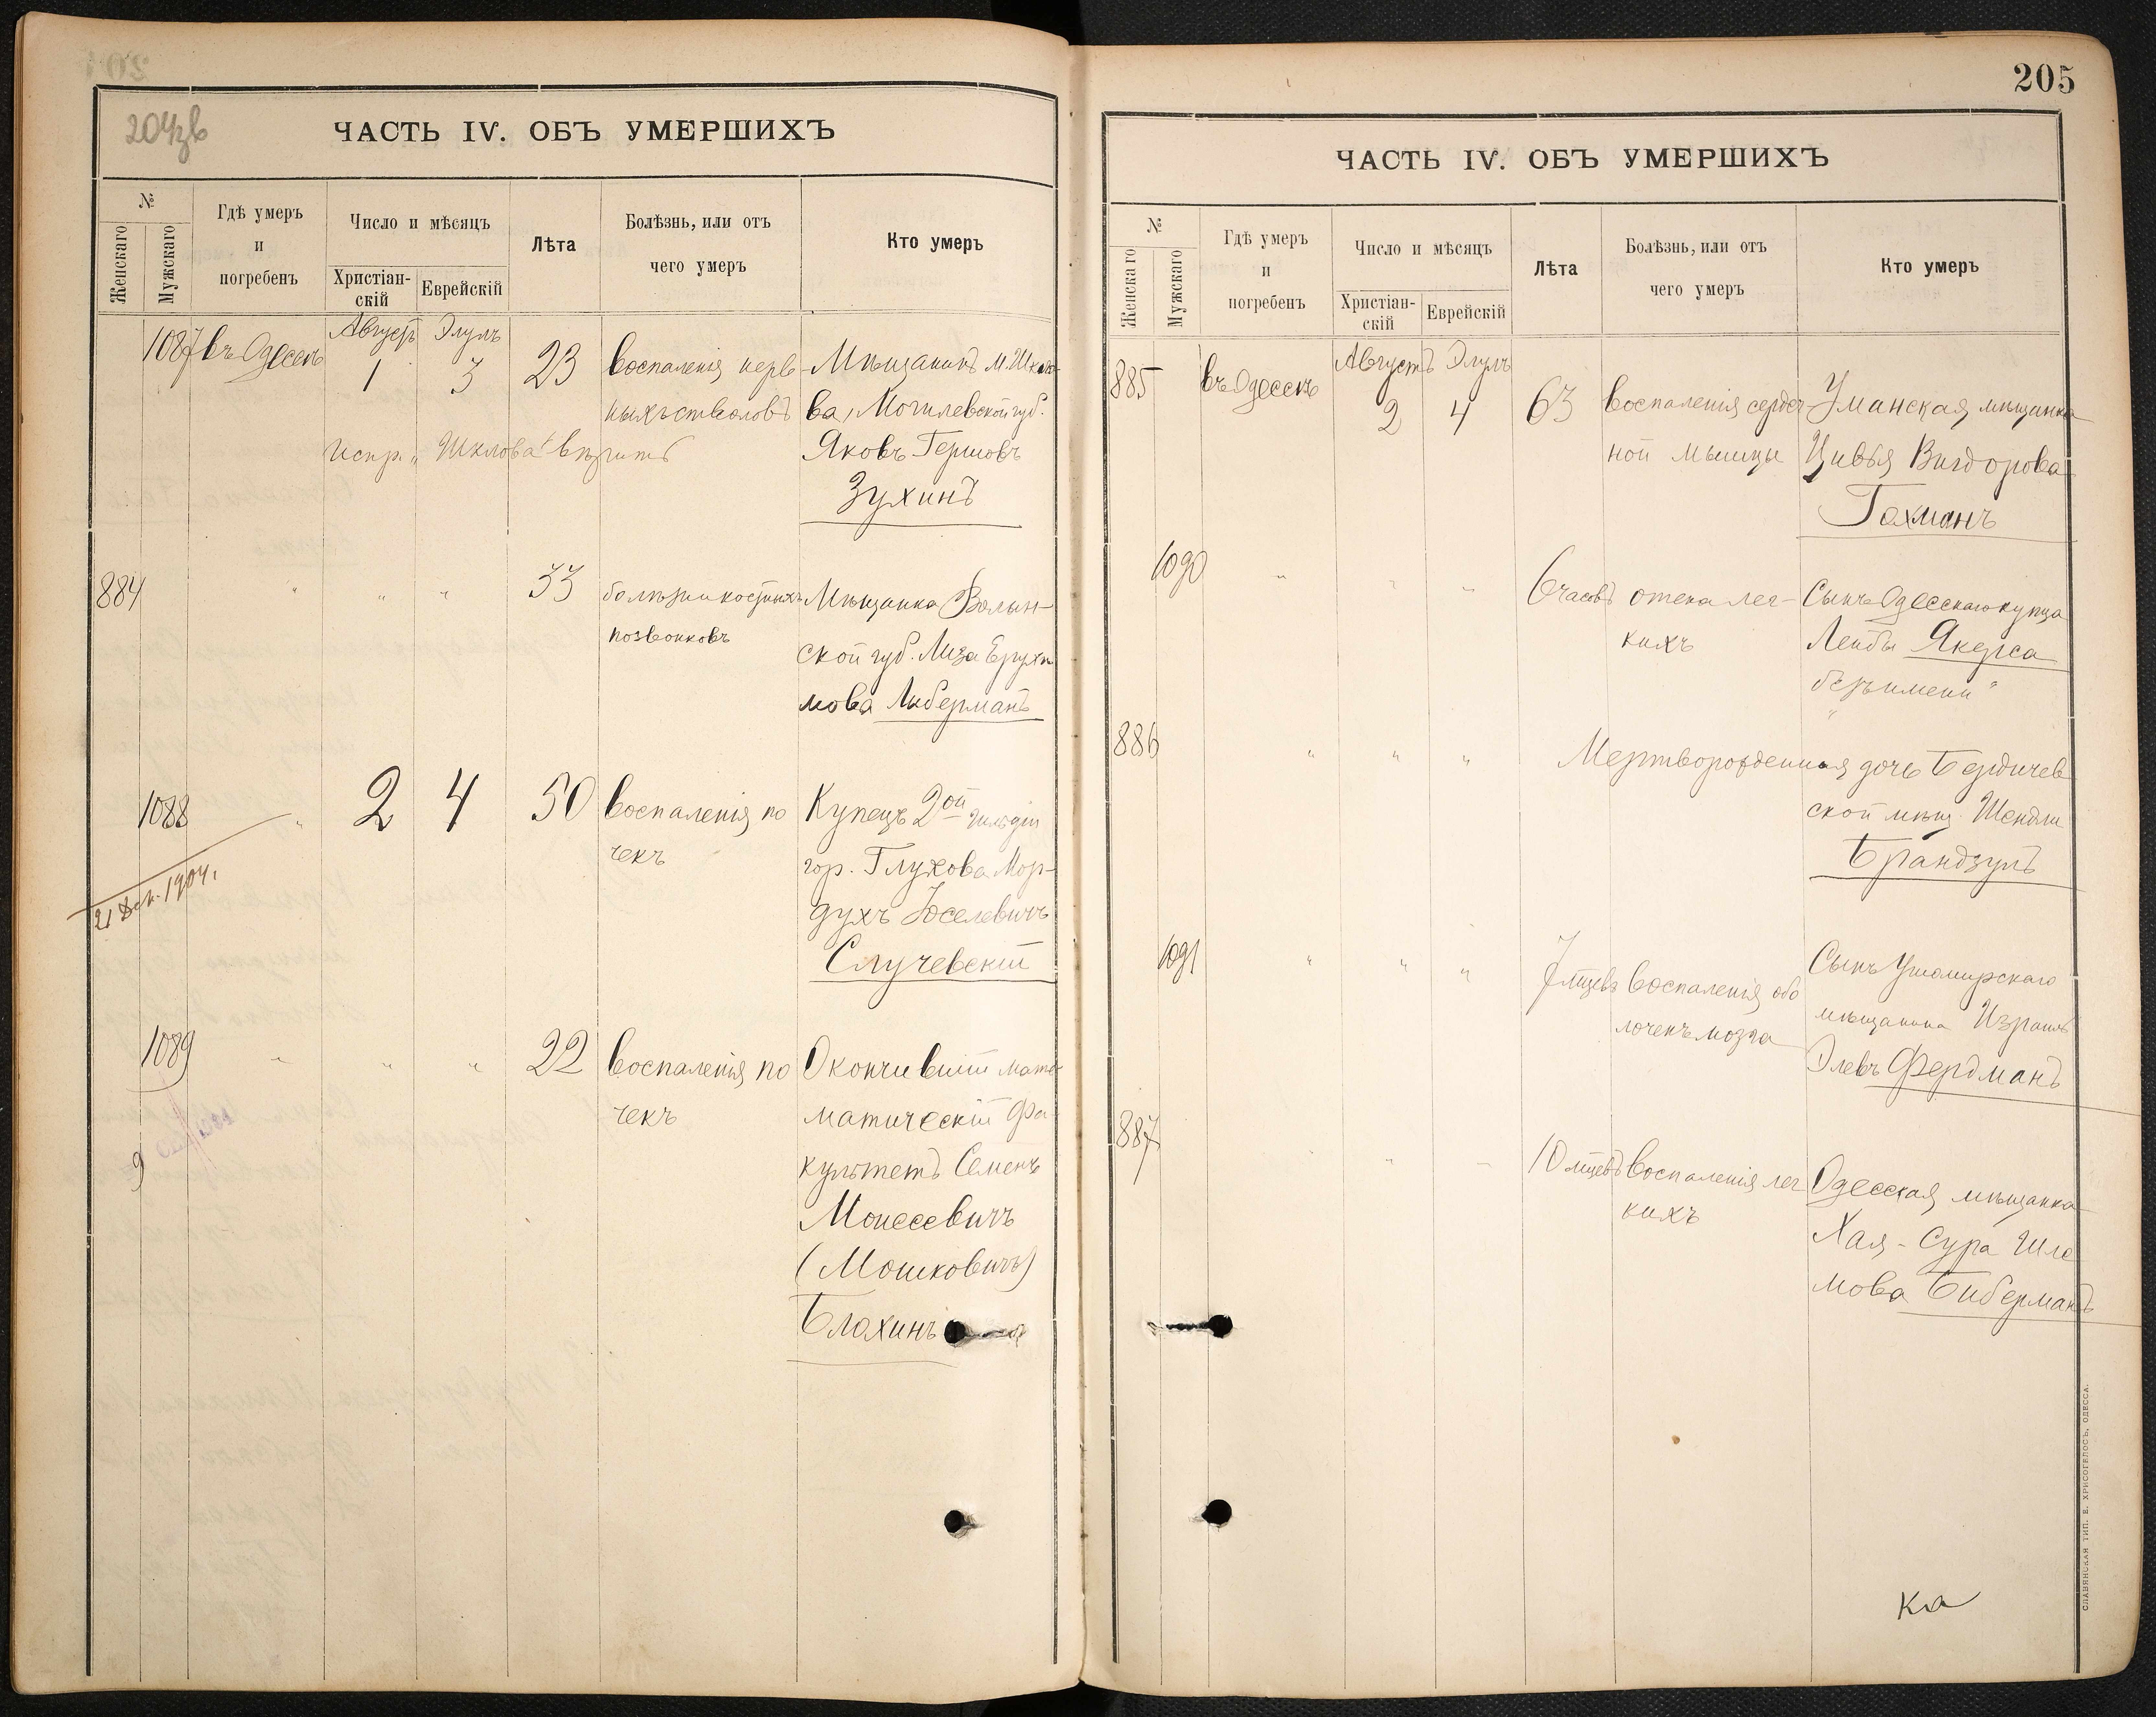 205
204зв
ЧАСТЬ IV. ОБЪ УМЕРШИХЪ
№
Женскаго
Мужскаго
Гдѣ умеръ
и
погребенъ
Число и мѣсяцъ
Христіан-
скій
Еврейскій
Лѣта
Болѣзнь, или отъ
чего умеръ
Кто умеръ
1087 въ Одессѣ Августъ 1 Элулъ 3 23 воспаленія нерв-
ныхъ стволовъ
Мѣщанинъ м. Шкло-
ва, Могилевской губ.
Яковъ Гершовъ
Зухинъ
Испр. „Шклова" вѣрить
884 " " " 33 болѣзни костныхъ
позвонковъ
Мѣщанка Волын-
ской губ. Лиза Ерухи
мова Либерманъ
1088 " 2 4 50 воспаленія по
чекъ
Купецъ 2ой гильдіи
гор. Глухова Мор-
духъ Іоселевичъ
Случевскій
21 Дек. 1904.
1089 " " " 22 воспаленія по
чекъ
Окончившій мате-
матическій фа-
культетъ Семенъ
Моисеевичъ
(Мошковичъ)
Блохинъ
9
ЧАСТЬ IV. ОБЪ УМЕРШИХЪ
№
Женскаго
Мужскаго
Гдѣ умеръ
и
погребенъ
Число и мѣсяцъ
Христіан-
скій
Еврейскій
Лѣта
Болѣзнь, или отъ
чего умеръ
Кто умеръ
885 въ Одессѣ Августъ 2 Элулъ 4 63 воспаленія сердеч
ной мышцы
Уманская мѣщанка
Цивья Вигдорова
Гохманъ
1090 " " " 6 часовъ отека лег-
кихъ
Сынъ Одесскаго купца
Лейбы Якерса
"безъ имени"
886 " " " Мертворожденная дочь Бердичев
ской мѣщ. Шендли
Брандзулъ
1091 " " " 7 мцевъ воспаленія обо
лочекъ мозга
Сынъ Ушомирскаго
мѣщанина Израиль
Элевъ Фердманъ
887 " " " 10 мцевъ воспаленія лег
кихъ
Одесская мѣщанка
Хая-Сура Шле
мова Биберманъ
СЛАВЯНСКАЯ ТИП. Е. ХРИСОГЕЛОСЪ, ОДЕССА.